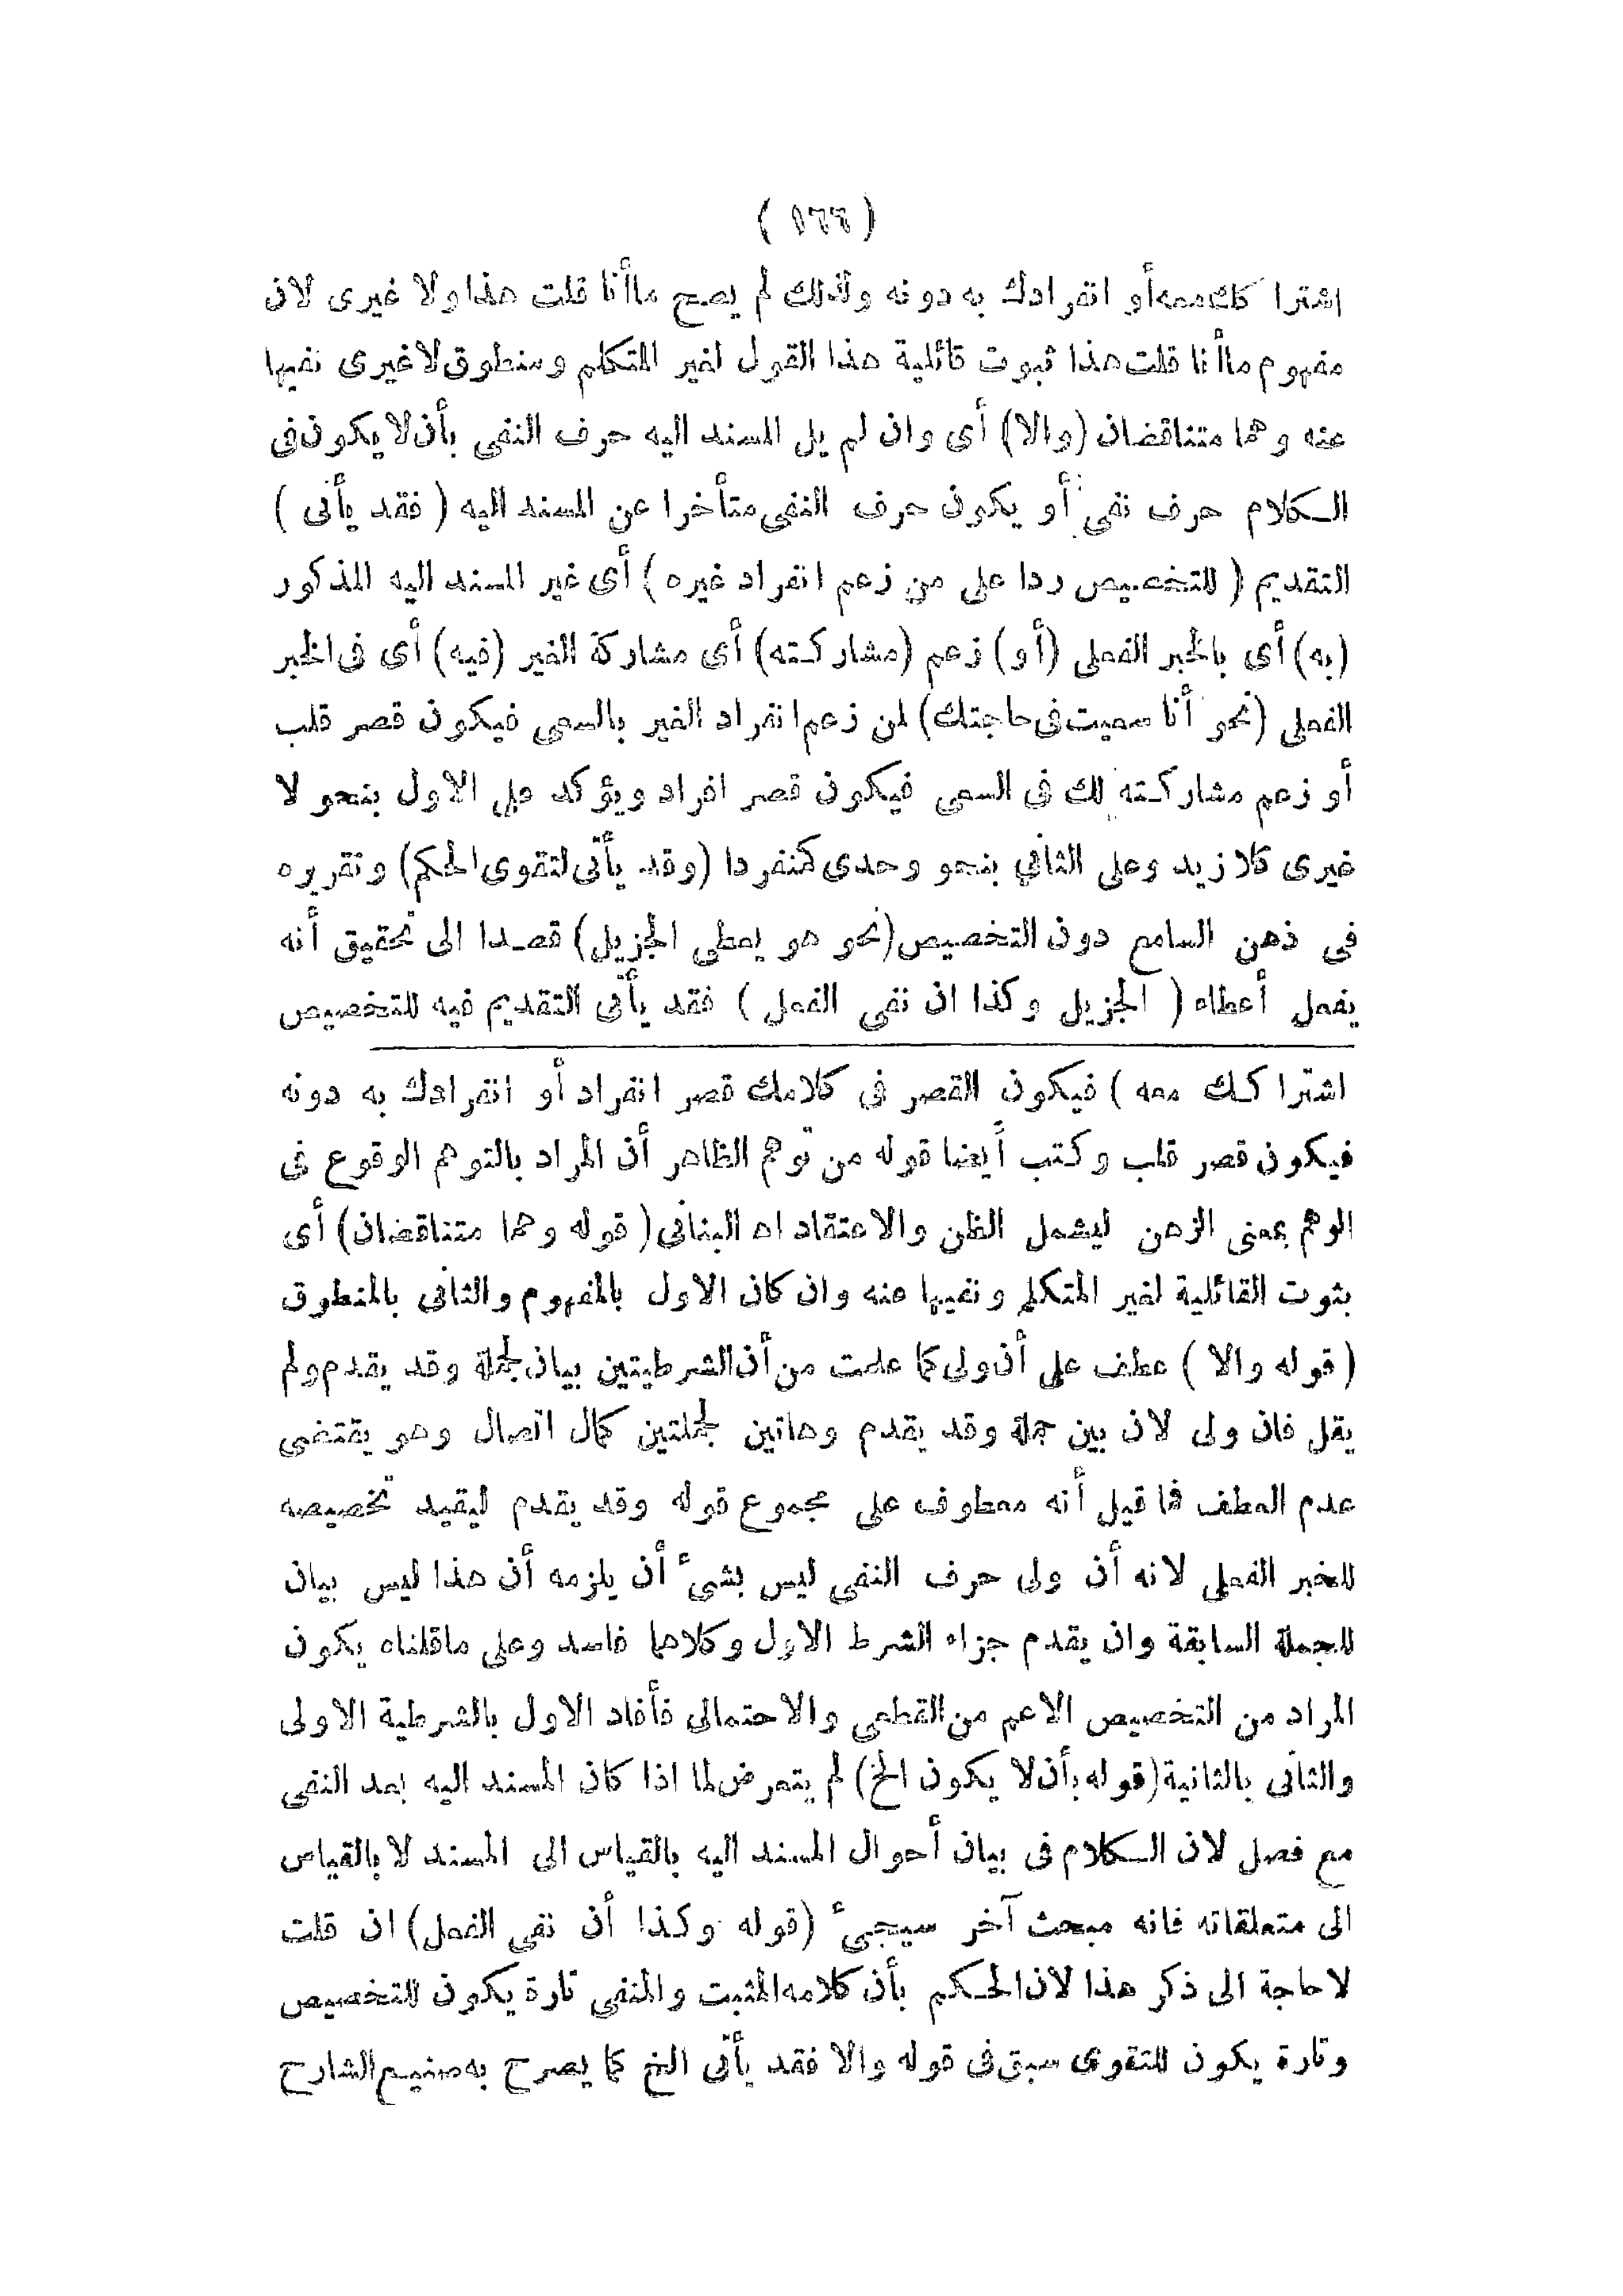 اشترا كك معه أو انفرادك به دونه ولذلك لم يصح ما أنا قلت هذا ولا غيرى لان
مفهوم ما أنا قلت هذا ثبوت قائلية هذا القول لغير المتكلم ومنطوق لا غيرى نفيها
عنه وهما متناقضان (والا) أى وان لم يل المسند اليه حرف النفى بأن لا يكون فى
الكلام حرف نفى أو يكون حرف النفى متأخرا عن المسند اليه ( فقد يأتى )
التقديم ( للتخصيص ردا على من زعم انفراد غيره ) أى غير المسند اليه المذكور
(به) أى بالخبر الفعلى (أو) زعم (مشاركته) أى مشاركة الغير (فيه) أى فى الخبر
الفعلى (نحو أنا سعيت فى حاجتك) لمن زعم انفراد الغير بالسعى فيكون قصر قلب
أو زعم مشاركته لك فى السعى فيكون قصر افراد ويؤكد على الاول بنحو لا
غيرى كلا زيد وعلى الثانى بنحو وحدى كمنفردا (وقد يأتى لتقوى الحكم) وتقريره
فى ذهن السامع دون التخصيص (نحو هو يعطى الجزيل) قصدا الى تحقيق أنه
يفعل أعطاه ( الجزيل وكذا ان نفى الفعل ) فقد يأتى التقديم فيه للتخصيص
اشترا كك معه ) فيكون القصر فى كلامك قصر انفراد أو انفرادك به دونه
فيكون قصر قلب وكتب أيضا قوله من توهم الظاهر أن المراد بالتوهم الوقوع فى
الوهم بمعنى الزهن ليشمل الظن والاعتقاد اه البنانى ( قوله وهما متناقضان) أى
بثوت القائلية لغير المتكلم ونفيها عنه وان كان الاول بالمفهوم والثانى بالمنطوق
( قوله والا ) عطف على أن ولى كما علمت من أن الشرطيتين بيان لجملة وقد يقدم ولم
يقل فان ولى لان بين جملة وقد يقدم وهاتين لجملتين كمال اتصال وهو يقتضى
عدم العطف فما قيل أنه معطوف على مجموع قوله وقد يقدم ليفيد تخصيصه
للخبر الفعلى لانه أن ولى حرف النفى ليس بشىء أن يلزمه أن هذا ليس بيان
للجملة السابقة وان يقدم جزاء الشرط الاول وكلاهما فاسد وعلى ما قلناه يكون
المراد من التخصيص الاعم من القطعى والاحتمالى فأفاد الاول بالشرطية الاولى
والثانى بالثانية (قوله بأن لا يكون الخ) لم يتعرض لما اذا كان المسند اليه بعد النفى
مع فصل لان الكلام فى بيان أحوال المسند اليه بالقياس الى المسند لا بالقياس
الى متعلقاته فانه مبحث آخر سيجىء (قوله وكذا أن نفى الفعل) ان قلت
لا حاجة الى ذكر هذا لان الحكم بأن كلامه المثبت والمنفى تارة يكون للتخصيص
وتارة يكون للتقوى سبق فى قوله والا فقد يأتى الخ كما يصرح به صنيع الشارح